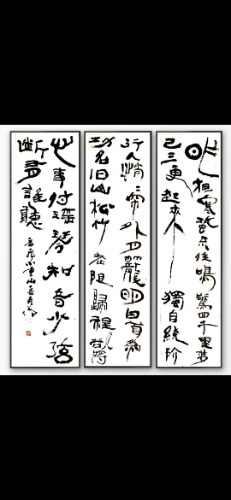 昨夜寒蛩不住鳴驚回千里夢
已三更起來獨自繞階
行人悄悄簾外月朧明白首為
功名旧山松竹老阻歸程欲將
心事付瑶琴知音少弦
斷有誰聽
岳飛小重山